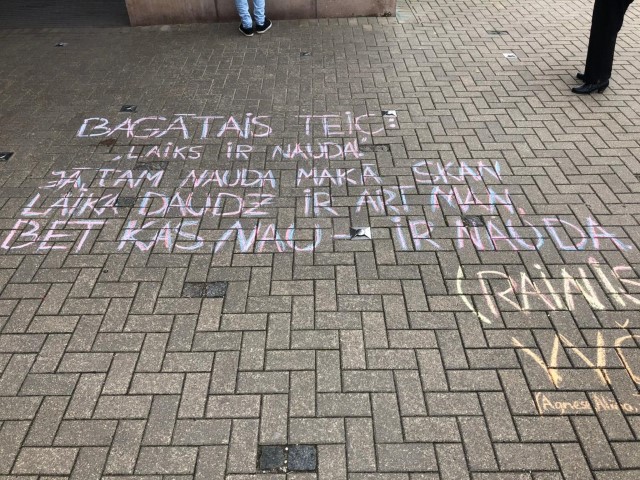 BAGĀTAIS TEIC:
„LAIKS IR NAUDA!
JĀ, TAM NAUDA MAKĀ SKAN,
LAIKA DAUDZ IR ARĪ MAN,
BET KAS NAV — IR NAUDA.
(RAINIS
(Agnese